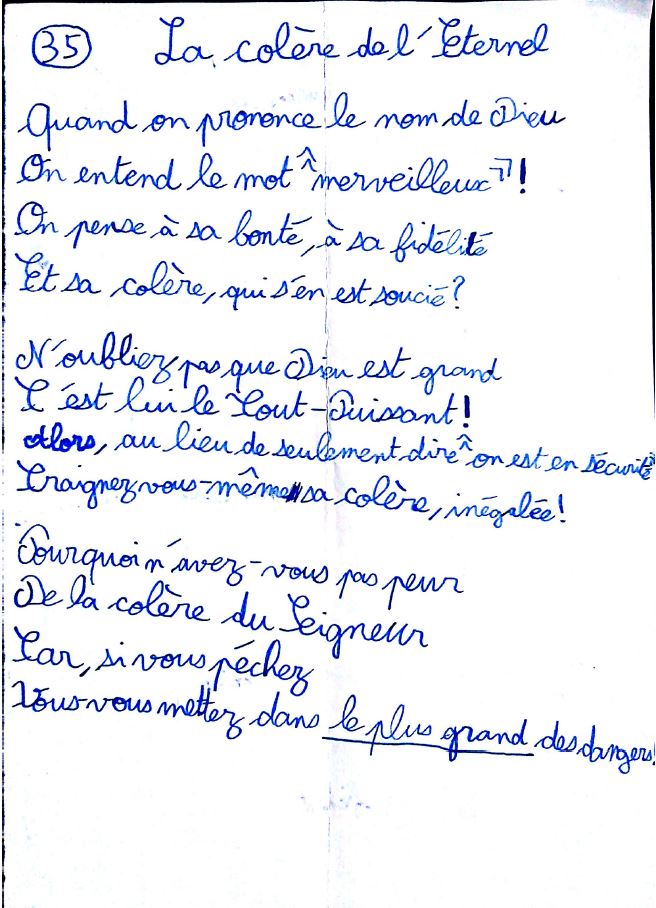 35 La colère de l'Eternel
Quand on prononce le nom de Dieu
On entend le mot "merveilleux"!
On pense à sa bonté, à sa fidélité
Et sa colère, qui s'en est soucié?
N'oubliez pas que Dieu est grand
C'est lui le Tout-Puissant!
Alors, au lieu de seulement dire "on est en sécurité"
Craignez vous-même sa colère, inégalée!
Pourquoi n'avez-vous pas peur
De la colère du Seigneur
Car, si vous péchez
Vous vous mettez dans le plus grand des dangers!